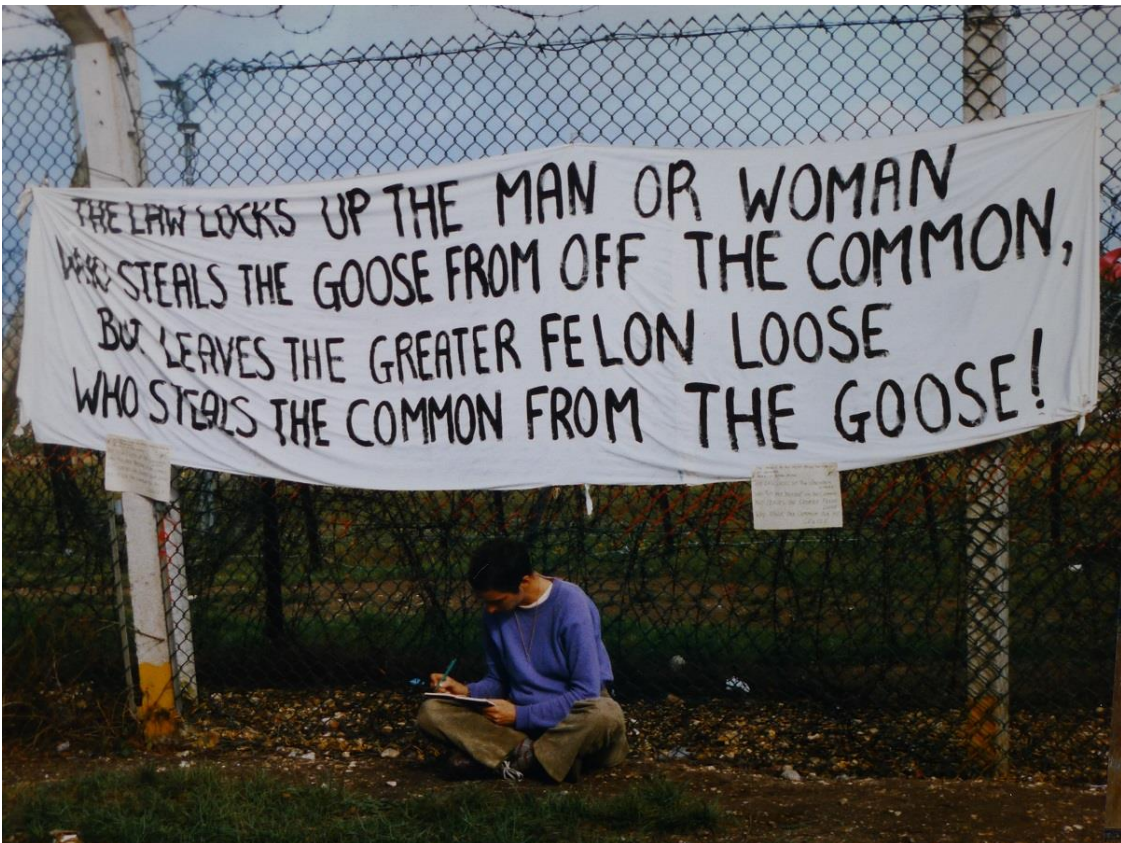 THE LAW LOCKS UP THE MAN OR WOMAN
WHO STEALS THE GOOSE FROM OFF THE COMMON,
BUT LEAVES THE GREATER FELON LOOSE
WHO STEALS THE COMMON FROM THE GOOSE!